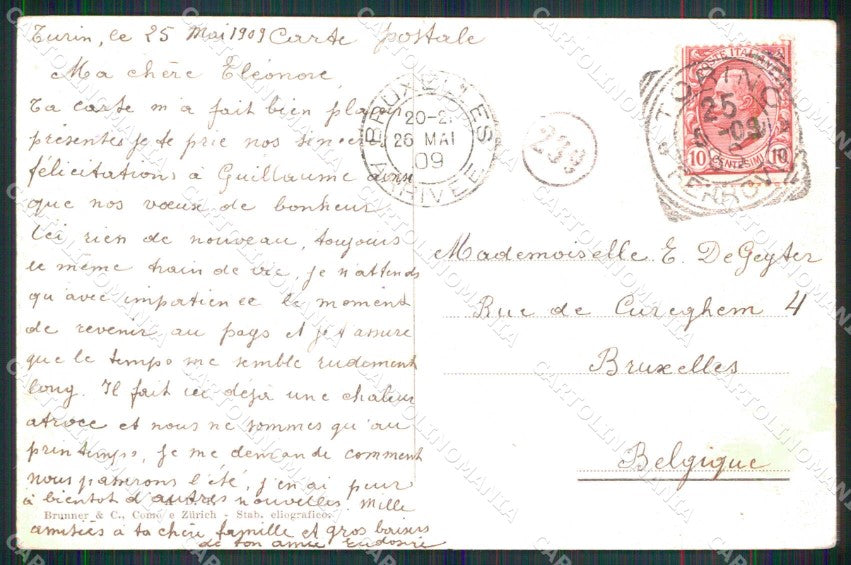 Turin, le 25 Mai 1909 Carte Postale
Ma chère Eléonore,
Ta carte m'a fait bien plaisir
présentes je te prie nos sincères
félicitations à Guillaume ainsi
que nos vœux de bonheur
Ici rien de nouveau, toujours
le même train de vie, je n'attends
qu'avec impatience le moment
de revenir au pays et je t'assure
que le temps me semble rudement
long. Il fait ici déjà une chaleur
atroce et nous ne sommes qu'au
printemps, je me demande comment
nous passerons l'été, j'en ai peur
à bientôt d'autres nouvelles Mille
Brunner & C., Como e Zürich - Stab. eliografico.
amitiés à ta chère famille et gros baisers
de ton amie Eudoxie
BRUXELLES
20-21
26 MAI
09
ARRIVEE
239
POSTE ITALIANE
10 CENTESIMI 10
TORINO
25
5-09
FERROVIA
Mademoiselle E. DeGeyter
Rue de Cureghem 4
Bruxelles
Belgique
CARTOLINOMANIA